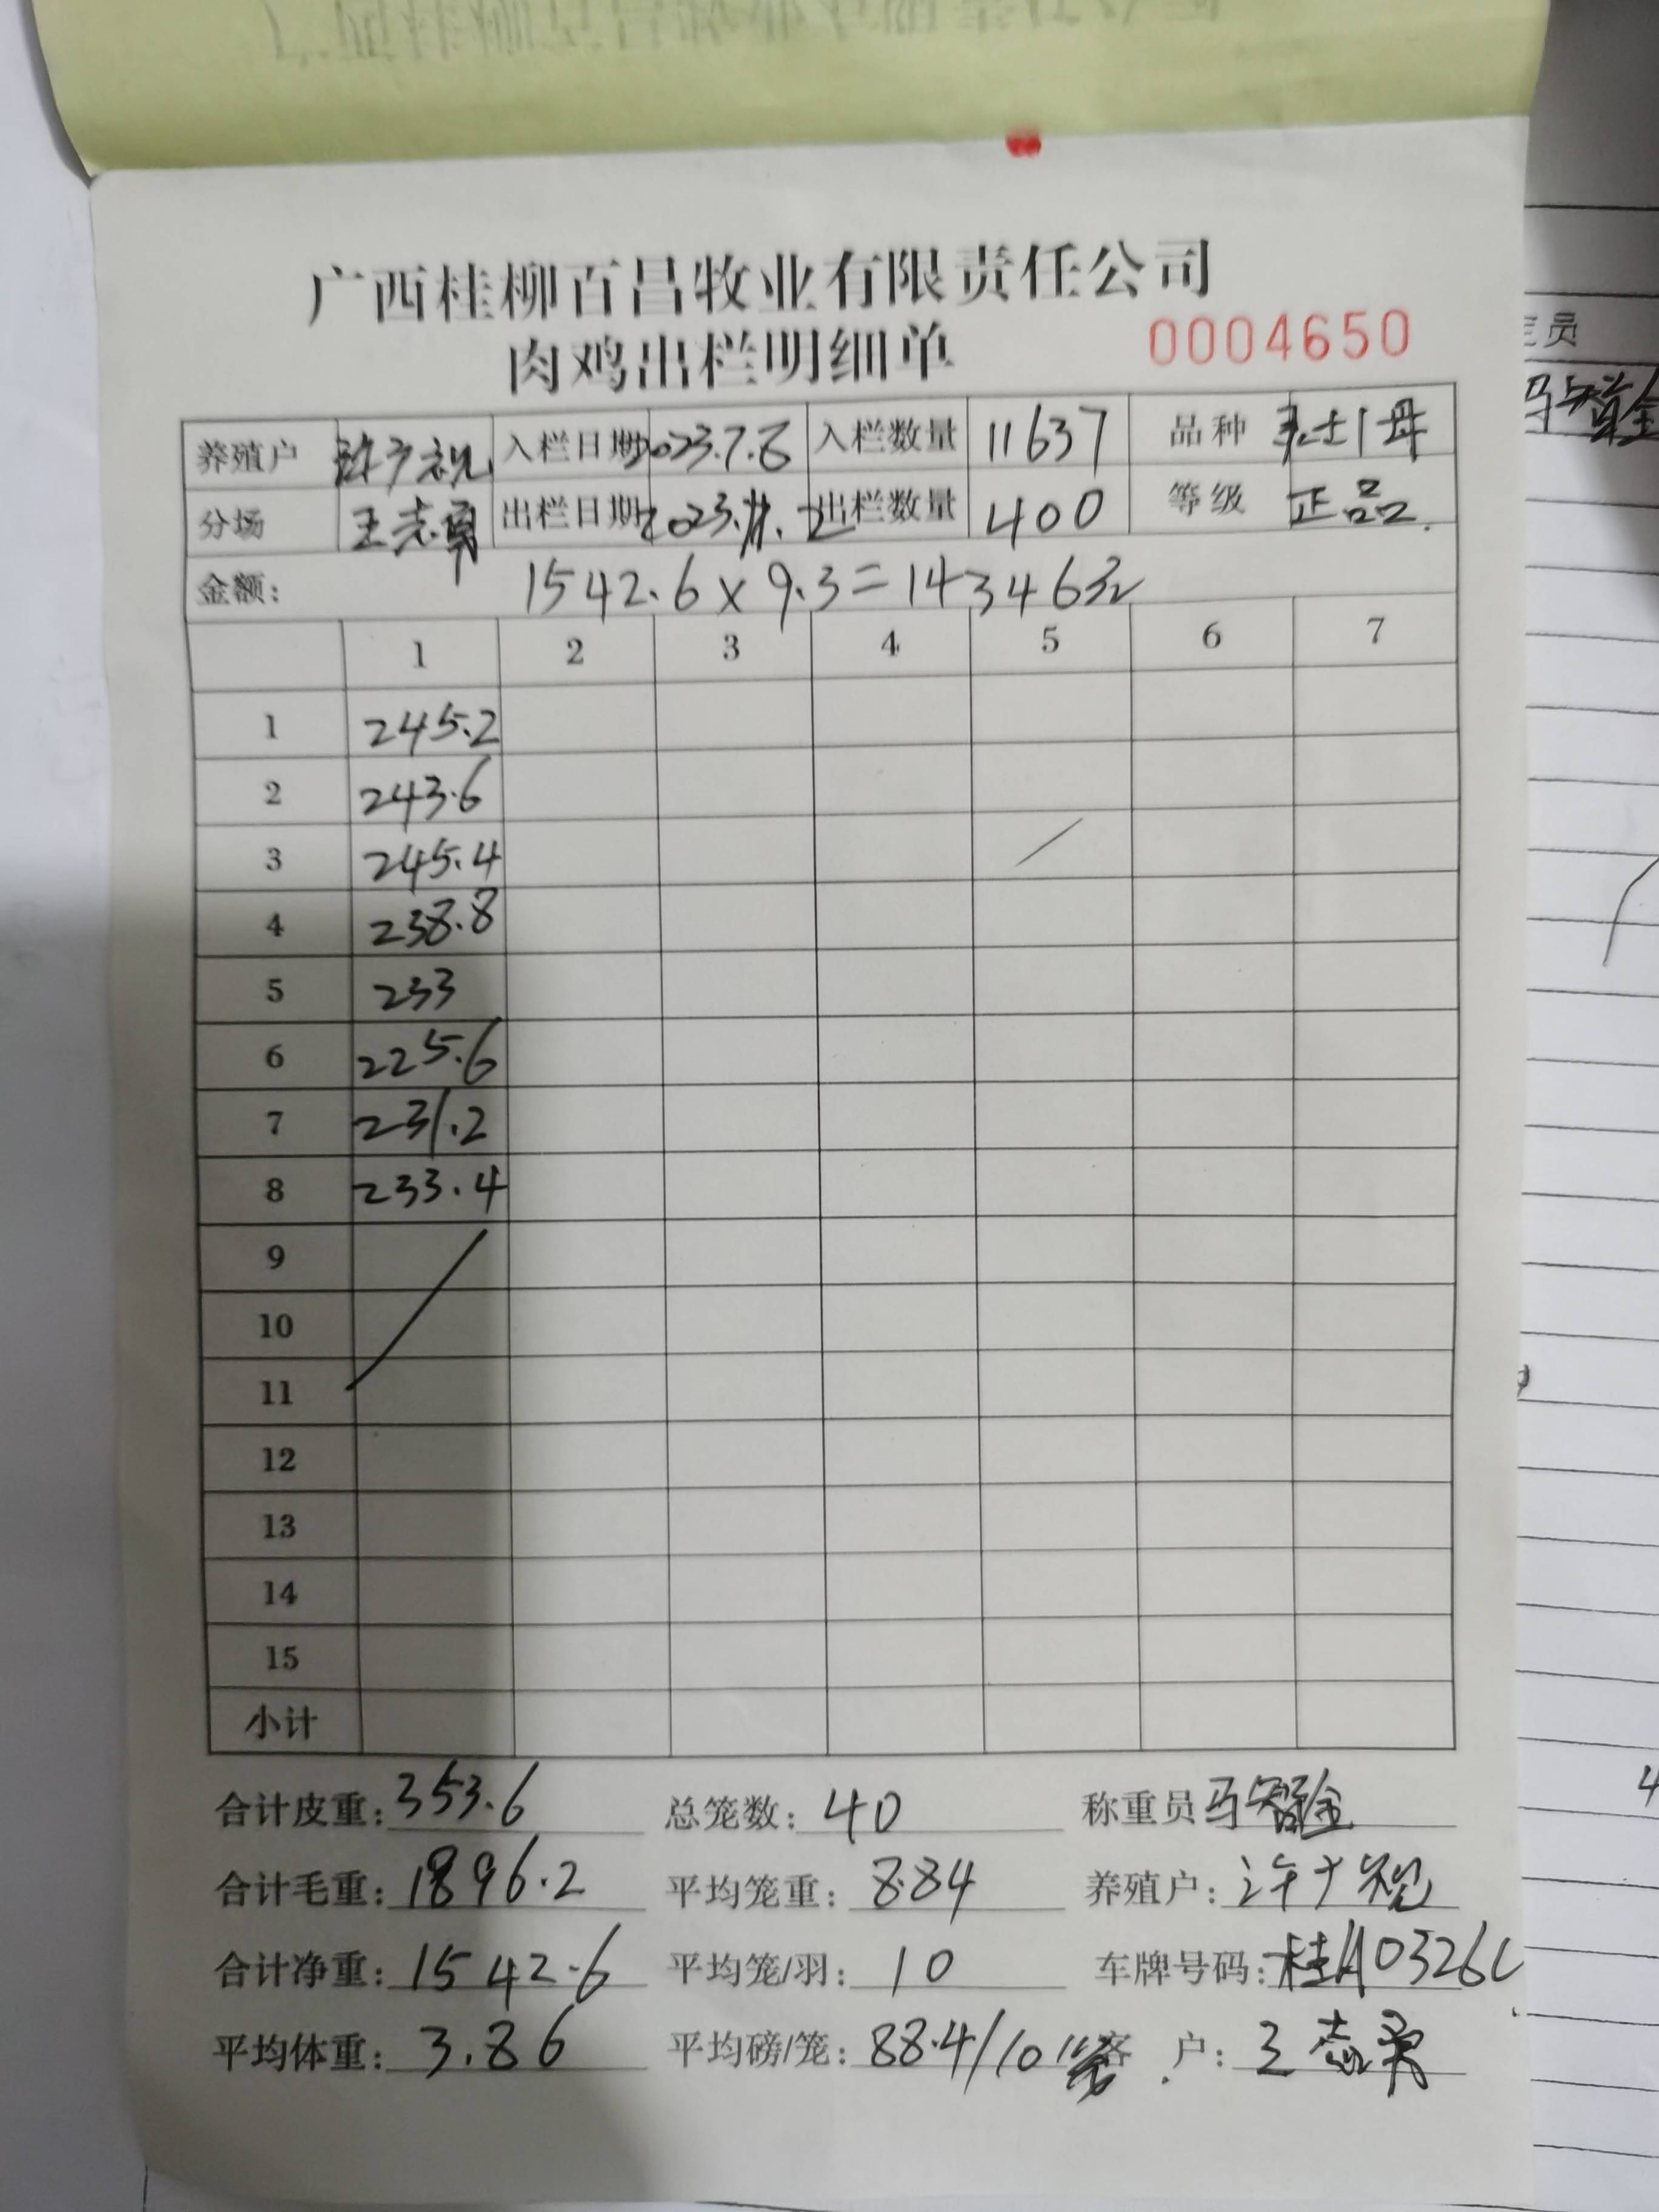 广西桂柳百昌牧业有限责任公司
肉鸡出栏明细单 0004650
养殖户 许广祝 入栏日期 2023.7.6 入栏数量 11637 品种
分场 王志勇 出栏日期 2023.11. 出栏数量 400 等级 正品.
金额: 1542.6×9.3=14346元
1 2 3 4 5 6 7
1 245.2
2 243.6
3 245.4
4 238.8
5 233
6 225.6
7 231.2
8 233.4
9
10
11
12
13
14
15
小计
合计皮重: 353.6 总笼数: 40 称重员 马智金
合计毛重: 1896.2 平均笼重: 8.84 养殖户: 许广祝
合计净重: 1542.6 平均笼/羽: 10 车牌号码: 桂A0326L
平均体重: 3.86 平均磅/笼: 88.4/10 客户: 王志勇
员
马智金